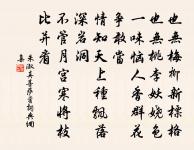 也無梅柳新標格
也無桃李妖嬈色
一味惱人香群花
爭敢當
情知天上種飄落
深岩洞
不管月宮寒將枝
比並看
朱淑真菩薩蠻
集